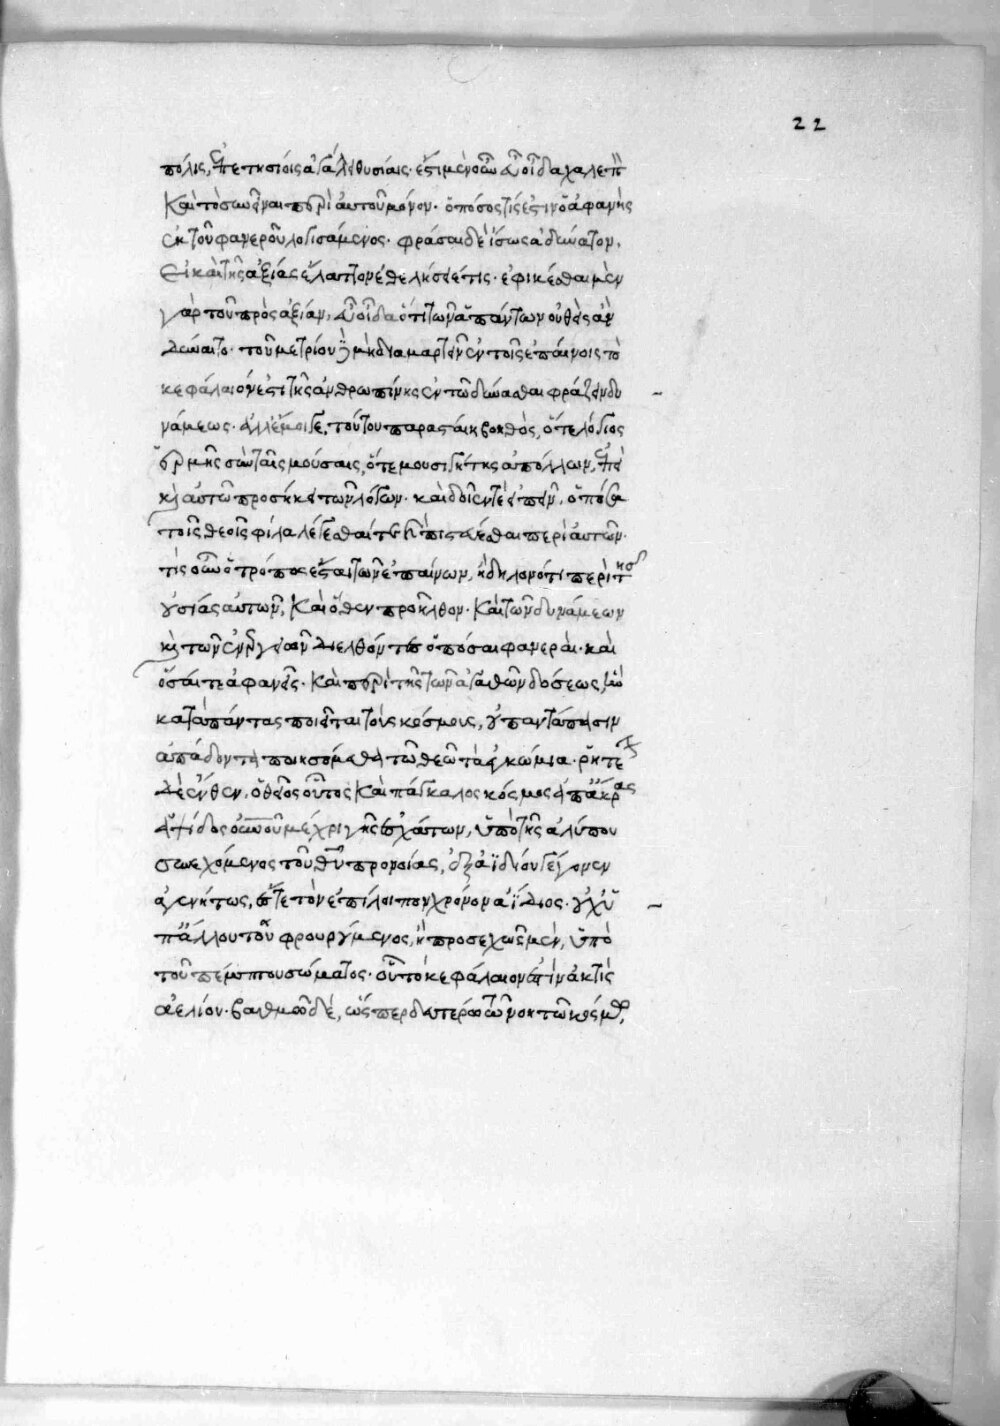 22
πόλις, ἐπετησίοις ἀγάλλει θυσίαις. ἔστι μὲν οὖν εὖ οἶδα χαλεπὸν
καὶ τὸ συνεῖναι περὶ αὐτοῦ μόνον. ὁπόσος τίς ἐστιν ὁ ἀφανὴς
ἐκ τοῦ φανεροῦ λογισάμενος. φράσαι δὲ ἴσως ἀδύνατον,
εἰ καὶ τῆς ἀξίας ἔλαττον ἐθελήσειέ τις. ἐφικέσθαι μὲν
γὰρ τοῦ πρὸς ἀξίαν, εὖ οἶδα ὅτι τῶν ἁπάντων οὐθεὶς ἂν
δύναιτο. τοῦ μετρίου δὲ μὴ διαμαρτεῖν ἐν τοῖς ἐπαίνοις τὸ
κεφάλαιόν ἐστι τῆς ἀνθρωπίνης ἐν τῷ δύνασθαι φράζειν δυ
νάμεως. ἀλλ' ἔμοιγε, τούτου παρασταίη βοηθὸς, ὅ τε λόγιος
ἑρμῆς σὺν ταῖς μούσαις, ὅ τε μουσηγέτης ἀπόλλων, ἐπεὶ
καὶ αὐτῷ προσήκει τῶν λόγων. καὶ δοῖεν δὲ εἰπεῖν, ὁπόσα
τοῖς θεοῖς φίλα λέγεσθαί τε καὶ πιστεύεσθαι περὶ αὐτῶν.
τίς οὖν ὁ τρόπος ἔσται τῶν ἐπαίνων, ἢ δηλονότι περὶ τῆς
οὐσίας αὐτοῦ, καὶ ὅθεν προῆλθον. καὶ τῶν δυνάμεων
καὶ τῶν ἐνεργειῶν διελθόντες ὁπόσαι φανεραὶ. καὶ
ὅσαι τε ἀφανεῖς. καὶ περὶ τῆς τῶν ἀγαθῶν δόσεως, ἣν
κατὰ πάντας ποιεῖται τοὺς κόσμους, οὐ παντάπασιν
ἀπάδοντα ποιησόμεθα τῷ θεῷ τὰ ἐγκώμια. ἀρκτέον
δὲ ἐνθεν. ὁ θεῖος οὗτος καὶ πάγκαλος κόσμος ἀπ' ἄκρας
ἁψῖδος οὐρανοῦ μέχρι γῆς ἐσχάτων, ὑπὸ τῆς ἀλύτου
συνεχόμενος τοῦ θεοῦ προνοίας, ἐξ ἀϊδίου γέγονεν
ἀγενήτως, ἔς τε τὸν ἐπίλοιπον χρόνον ἀΐδιος. οὐχ ὑ
π' ἄλλου του φρουρούμενος, ἢ προσεχῶς μὲν, ὑπὸ
τοῦ πέμπτου σώματος. οὗ τὸ κεφάλαιόν ἐστιν ἀκτὶς
ἀελίου. βαθμῷ δὲ, ὥσπερ δευτέρῳ τῶν ἐκ τῶν νοητῶν